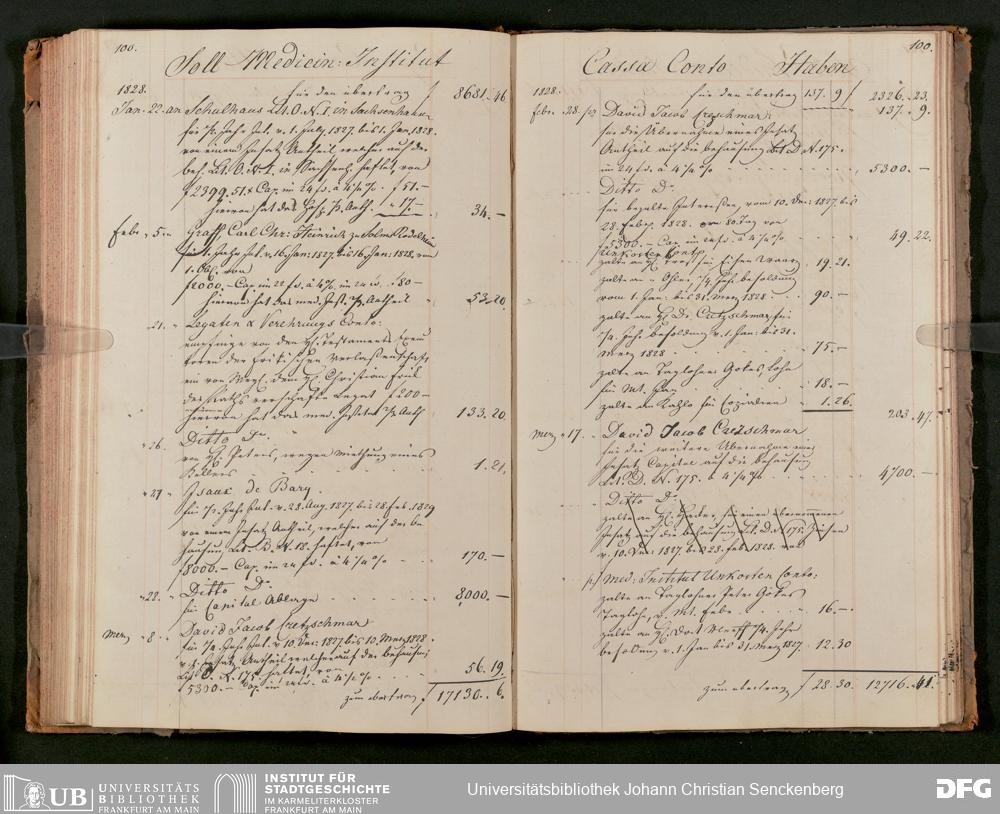 100.
Soll Medicin: Institut
1828.
für den übertrag f 8681.46
Jan. 22. an Schulhaus Lit. O. N. 1. in Sachsenhausen
für 1/2 Jahr Int. v. 1. July 1827 bis 1. Jan. 1828.
von einem Insatz Antheil welcher auf der
beh. Lit. O. N. 1. in Sachsenh. haftet, von
f 2399.51 x Cap. im 24 f. à 4 1/4 % f 51.—
hiervon hat das Hosp. 1/3 Anth. " 17.— 34.—
Febr. " 5. " Graff Carl Chr: Heinrich zu Solms Rödelheim
für 1. Jahr Int. v. 16. Jan: 1827. bis 16. Jan: 1828. von
1. Obl. von
f 2000.— Cap. im 24 fr. à 4 %. im 24 fr. f 80—
hiervon hat das med. Inst. 2/3 Antheil 53.20
" 21. " Legaten & Verehrungs Conto:
empfinge von den H. Testaments Execu
toren der
ein von H. Christian
Legat f 200—
hiervon hat das med. Institut 2/3 Anth 133.20
" 26. Ditto Do.
von H. Peters, wegen Miethung eines
Kellers 1.21.
" 27 " Isaac de Bary.
für 1/2 Jahr Int. v. 28. Aug. 1827. bis 28. feb. 1828
von einem Insatz Antheil, welcher auf der be
hausung Lit. B. N. 18. haftet, von
f 8000.— Cap. im 24 fr. à 4 1/4 % 170.—
" 28. " Ditto Do.
für Capital Ablage 8,000.—
Merz " 8. " David Jacob Cretzschmar
für 1/4 Jahr Int. v. 10. Dec: 1827 bis 10. Merz 1828.
v. e. Insatz Antheil welcher auf der behausung
Lit. D. N. 175. haftet, von
5300.— Cap. im 24 fr. à 4 1/4 % 56.19.
zum übertrag f 17130. 6.
100.
Cassa Conto Haben
1828.
für den übertrag 137. 9 f 2326.23.
febr. 28. David Jacob Cretzschmar. 137. 9.
für die Übernahme eines Insatz
Antheil auf die behausung Lit. D. N. 175.
im 24 fr. à 4 1/4 % 5300.—
Ditto Do.
für bezalte Interessen, vom 10. Dec: 1827. bis
28. Febr. 1828. 80. Tag von
f 5300.— Cap. im 24 fr. à 4 1/4 % 49.22.
Unkosten Conto
zalte an für Eisen Waar 19.21.
zalte an 1/4. Jahr besoldung
vom 1. Jan: bis 31. Merz 1828 90.—
zalte an H. Dr. Cretzschmar für
1/4. Jahr besoldung v. 1. Jan: bis 31.
Merz 1828 75.—
zalte an Taglohner Gökes, lohn
für Mt. Jan. 18.—
zalte an für Copialien 1.26.
203.47.
Merz " 17. " David Jacob Cretzschmar
für die weitere Übernahme eines
Insatz Capital auf die behausung
Lit. D. N. 175. à 4 1/4 % 4700.—
Ditto Do.
zalte an H. für einen übernommenen
Insatz auf die behausung Lit. D. N. 175. Zinsen
v. 10. Dec: 1827. bis 28. feb. 1828. von
Med: Institut Unkosten Conto:
zalte an Taglohner Peter Gökes
Taglohn, v. Mt. Febr. 16.—
zalte an H. Doct 1/4. Jahr
besoldung v. 1. Jan bis 31. Merz 1827. 12.30
zum übertrag f 28.30. 12716.41.
UB UNIVERSITÄTS
BIBLIOTHEK
FRANKFURT AM MAIN
INSTITUT FÜR
STADTGESCHICHTE
IM KARMELITERKLOSTER
FRANKFURT AM MAIN
Universitätsbibliothek Johann Christian Senckenberg
DFG